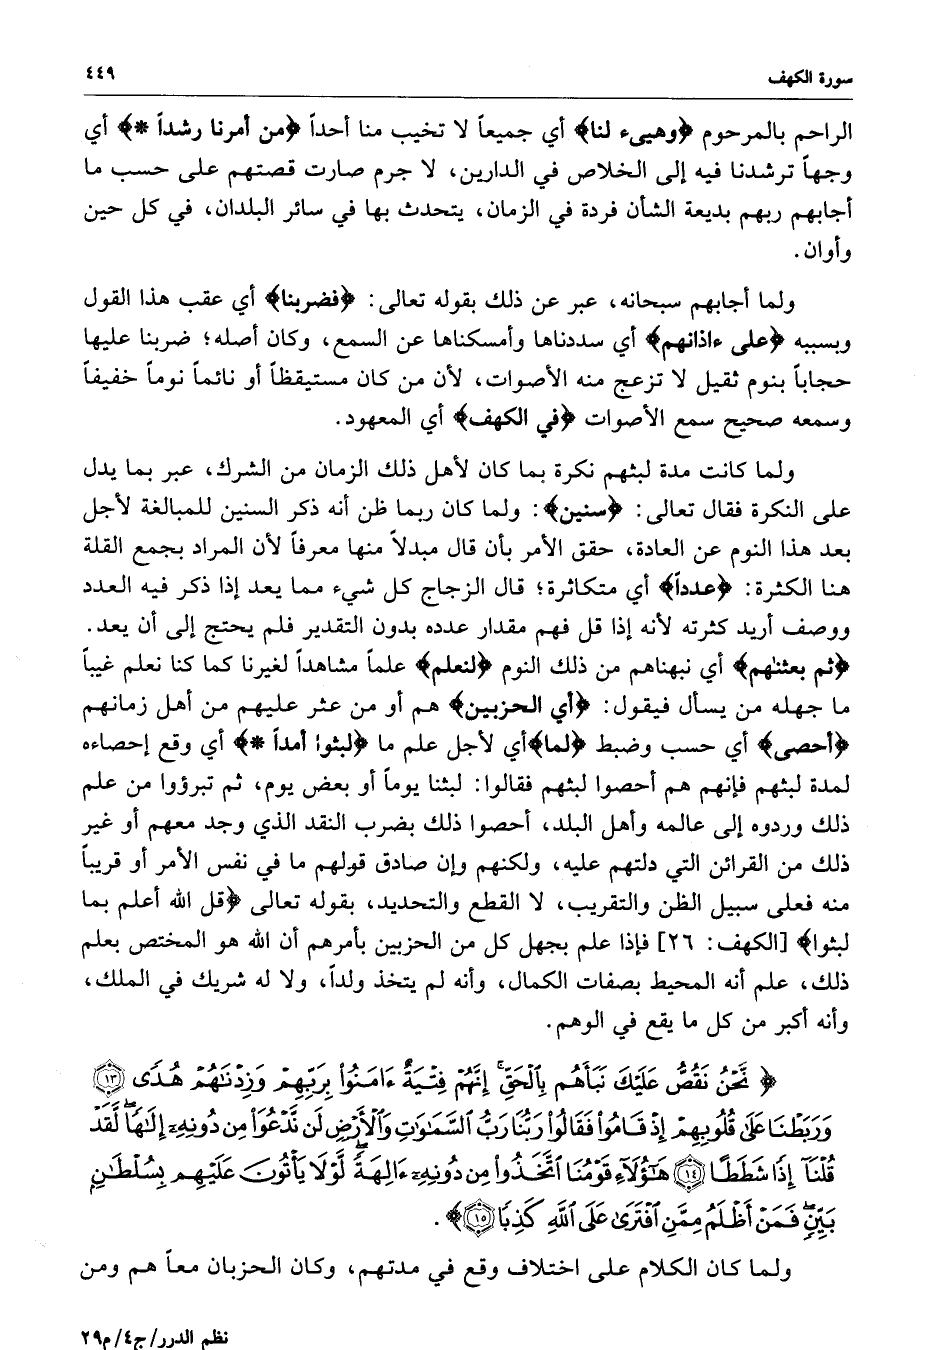 سورة الكهف ٤٤٩
الراحم بالمرحوم ﴿وهيىء لنا﴾ أي جميعاً لا تخيب منا أحداً ﴿من أمرنا رشداً *﴾ أي
وجهاً ترشدنا فيه إلى الخلاص في الدارين، لا جرم صارت قصتهم على حسب ما
أجابهم ربهم بديعة الشأن فردة في الزمان، يتحدث بها في سائر البلدان، في كل حين
وأوان.
ولما أجابهم سبحانه، عبر عن ذلك بقوله تعالى: ﴿فضربنا﴾ أي عقب هذا القول
وبسببه ﴿على ءاذانهم﴾ أي سددناها وأمسكناها عن السمع، وكان أصله؛ ضربنا عليها
حجاباً بنوم ثقيل لا تزعج منه الأصوات، لأن من كان مستيقظاً أو نائماً نوماً خفيفاً
وسمعه صحيح سمع الأصوات ﴿في الكهف﴾ أي المعهود.
ولما كانت مدة لبثهم نكرة بما كان لأهل ذلك الزمان من الشرك، عبر بما يدل
على النكرة فقال تعالى: ﴿سنين﴾: ولما كان ربما ظن أنه ذكر السنين للمبالغة لأجل
بعد هذا النوم عن العادة، حقق الأمر بأن قال مبدلاً منها معرفاً لأن المراد بجمع القلة
هنا الكثرة: ﴿عدداً﴾ أي متكاثرة؛ قال الزجاج كل شيء مما يعد إذا ذكر فيه العدد
ووصف أريد كثرته لأنه إذا قل فهم مقدار عدده بدون التقدير فلم يحتج إلى أن يعد.
﴿ثم بعثنٰهم﴾ أي نبهناهم من ذلك النوم ﴿لنعلم﴾ علماً مشاهداً لغيرنا كما كنا نعلم غيباً
ما جهله من يسأل فيقول: ﴿أي الحزبين﴾ هم أو من عثر عليهم من أهل زمانهم
﴿أحصى﴾ أي حسب وضبط ﴿لما﴾أي لأجل علم ما ﴿لبثوا أمداً *﴾ أي وقع إحصاءه
لمدة لبثهم فإنهم هم أحصوا لبثهم فقالوا: لبثنا يوماً أو بعض يوم، ثم تبرؤوا من علم
ذلك وردوه إلى عالمه وأهل البلد، أحصوا ذلك بضرب النقد الذي وجد معهم أو غير
ذلك من القرائن التي دلتهم عليه، ولكنهم وإن صادق قولهم ما في نفس الأمر أو قريباً
منه فعلى سبيل الظن والتقريب، لا القطع والتحديد، بقوله تعالى ﴿قل الله أعلم بما
لبثوا﴾ [الكهف: ٢٦] فإذا علم بجهل كل من الحزبين بأمرهم أن الله هو المختص بعلم
ذلك، علم أنه المحيط بصفات الكمال، وأنه لم يتخذ ولداً، ولا له شريك في الملك،
وأنه أكبر من كل ما يقع في الوهم.
﴿ نَّحْنُ نَقُصُّ عَلَيْكَ نَبَأَهُم بِٱلْحَقِّ ۚ إِنَّهُمْ فِتْيَةٌ ءَامَنُوا۟ بِرَبِّهِمْ وَزِدْنَٰهُمْ هُدًى ١٣
وَرَبَطْنَا عَلَىٰ قُلُوبِهِمْ إِذْ قَامُوا۟ فَقَالُوا۟ رَبُّنَا رَبُّ ٱلسَّمَٰوَٰتِ وَٱلْأَرْضِ لَن نَّدْعُوَا۟ مِن دُونِهِۦٓ إِلَٰهًا ۖ لَّقَدْ
قُلْنَآ إِذًا شَطَطًا ١٤ هَٰٓؤُلَآءِ قَوْمُنَا ٱتَّخَذُوا۟ مِن دُونِهِۦٓ ءَالِهَةً ۖ لَّوْلَا يَأْتُونَ عَلَيْهِم بِسُلْطَٰنٍۭ
بَيِّنٍ ۖ فَمَنْ أَظْلَمُ مِمَّنِ ٱفْتَرَىٰ عَلَى ٱللَّهِ كَذِبًا ١٥﴾.
ولما كان الكلام على اختلاف وقع في مدتهم، وكان الحزبان معاً هم ومن
نظم الدرر/ج٤/م٢٩